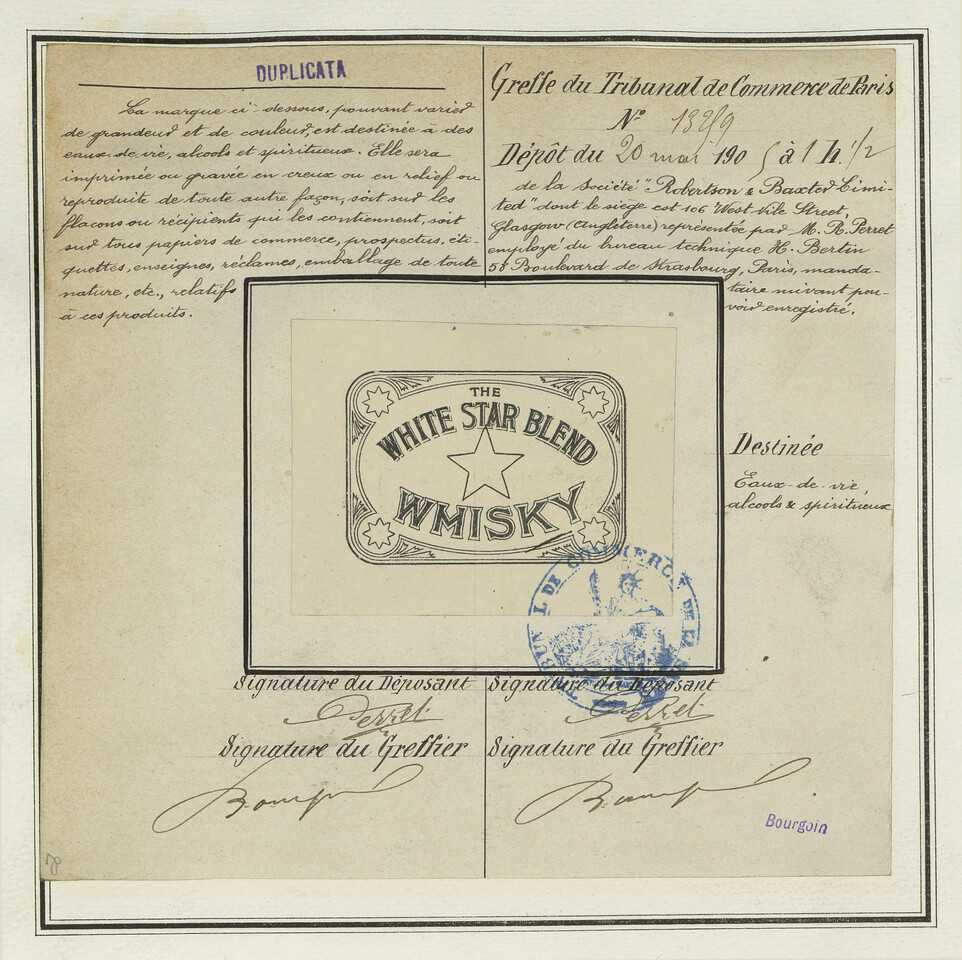 DUPLICATA
La marque ci-dessous, pouvant varier
de grandeur et de couleur, est destinée à des
eaux-de-vie, alcools et spiritueux. Elle sera
imprimée ou gravée en creux ou en relief ou
reproduite de toute autre façon, soit sur les
flacons ou récipients qui les contiennent, soit
sur tous papiers de commerce, prospectus, éti-
quettes, enseignes, réclames, emballage de toute
nature, etc., relatifs
à ces produits.
Greffe du Tribunal de Commerce de Paris
N° 13219
Dépôt du 20 mai 1905 à 1 h 1/2
de la Société "Robertson & Baxter Limi-
ted" dont le siège est 106 West Nile Street,
Glasgow (Angleterre) représentée par M. R. Perret
employé du bureau technique H. Bertin
58 Boulevard de Strasbourg, Paris, manda-
taire suivant pou-
voir enregistré.
THE
WHITE STAR BLEND
WHISKY
Destinée
Eaux-de-vie,
alcools & spiritueux
TRIBUNAL DE COMMERCE DE LA
Signature du Déposant
Perret
Signature du Greffier
Signature du Déposant
Perret
Signature du Greffier
Bourgoin